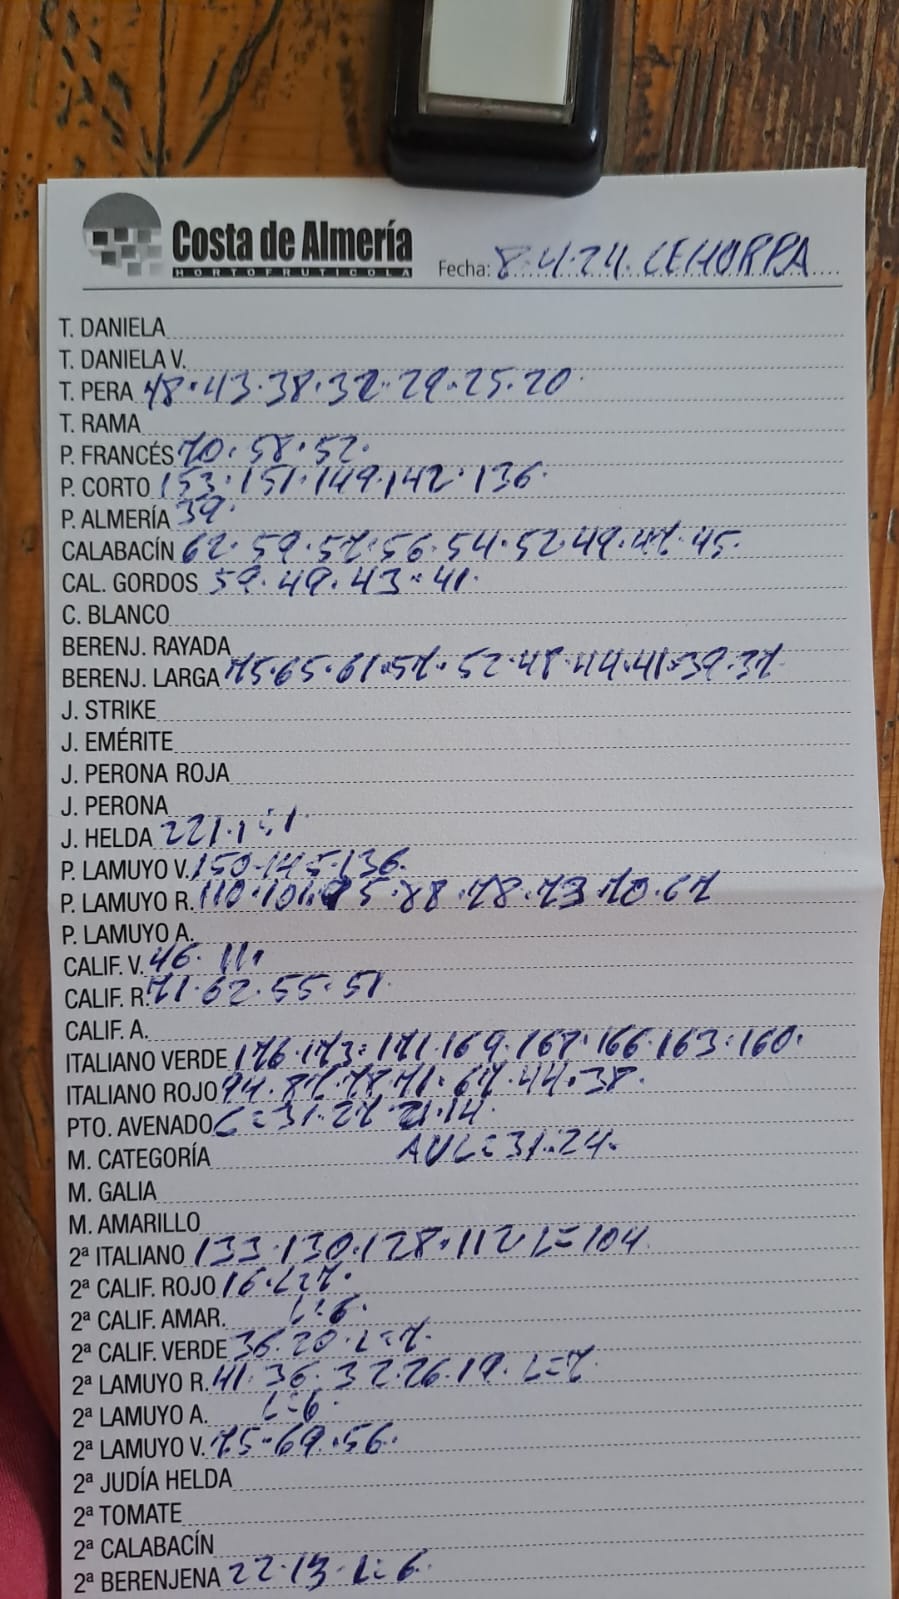 Costa de Almería
HORTOFRUTICOLA
Fecha: 8.4.24. CEHORPA
T. DANIELA
T. DANIELA V.
T. PERA 48.43.38.32.29.25.20
T. RAMA
P. FRANCÉS 70.58.52.
P. CORTO 153.151.149.142.136.
P. ALMERÍA 39.
CALABACÍN 62.59.57.56.54.52.49.47.45.
CAL. GORDOS 59.49.43.41.
C. BLANCO
BERENJ. RAYADA
BERENJ. LARGA 75.65.61.57.52.48.44.41.39.37
J. STRIKE
J. EMÉRITE
J. PERONA ROJA
J. PERONA
J. HELDA 221.
P. LAMUYO V. 150.145.136.
P. LAMUYO R. 110.101.95.88.78.73.70.67
P. LAMUYO A.
CALIF. V. 46.11.
CALIF. R. 71.62.55.51
CALIF. A.
ITALIANO VERDE 176.173.171.169.167.166.163.160.
ITALIANO ROJO 94.87.78.71.67.44.38.
PTO. AVENADO C=31.27.21.14.
M. CATEGORÍA AVL=31.24.
M. GALIA
M. AMARILLO
2ª ITALIANO 133.130.128.112 L=104
2ª CALIF. ROJO 16.L=7.
2ª CALIF. AMAR. L=6.
2ª CALIF. VERDE 36.20.L=7.
2ª LAMUYO R. 41.36.32.26.19.L=7.
2ª LAMUYO A. L=6.
2ª LAMUYO V. 75.69.56.
2ª JUDÍA HELDA
2ª TOMATE
2ª CALABACÍN
2ª BERENJENA 22.13.L=6.